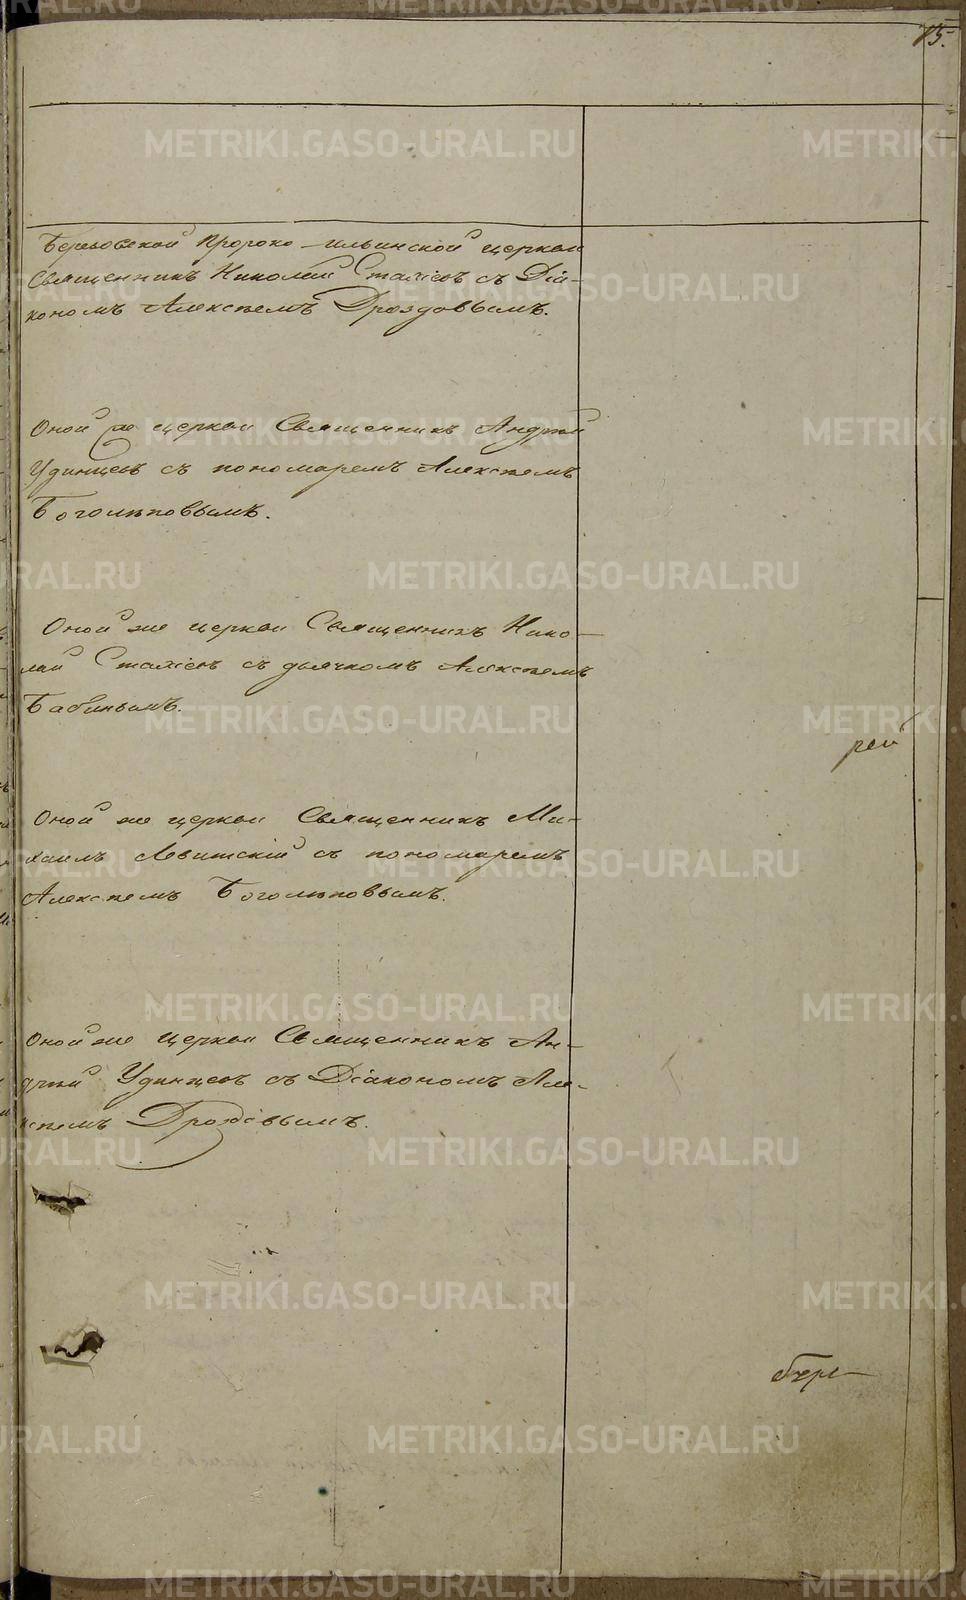 15.
Березовской Пророко-ильинской церкви
Священникъ Николай Стахіевъ съ Діа-
кономъ Алексѣемъ Дроздовымъ.
Оной же церкви Священникъ Андрей
Удинцевъ съ пономаремъ Алексѣемъ
Боголѣповымъ.
Оной же церкви Священникъ Нико-
лай Стахіевъ съ дьячкомъ Алексѣемъ
Бабинымъ.
рей
Оной же церкви Священникъ Ми-
хаилъ Левитскій съ пономаремъ
Алексѣемъ Боголѣповымъ.
Оной же церкви Священникъ Ан-
дрей Удинцевъ съ Діакономъ Але-
ксѣемъ Дроздовымъ.
METRIKI.GASO-URAL.RU